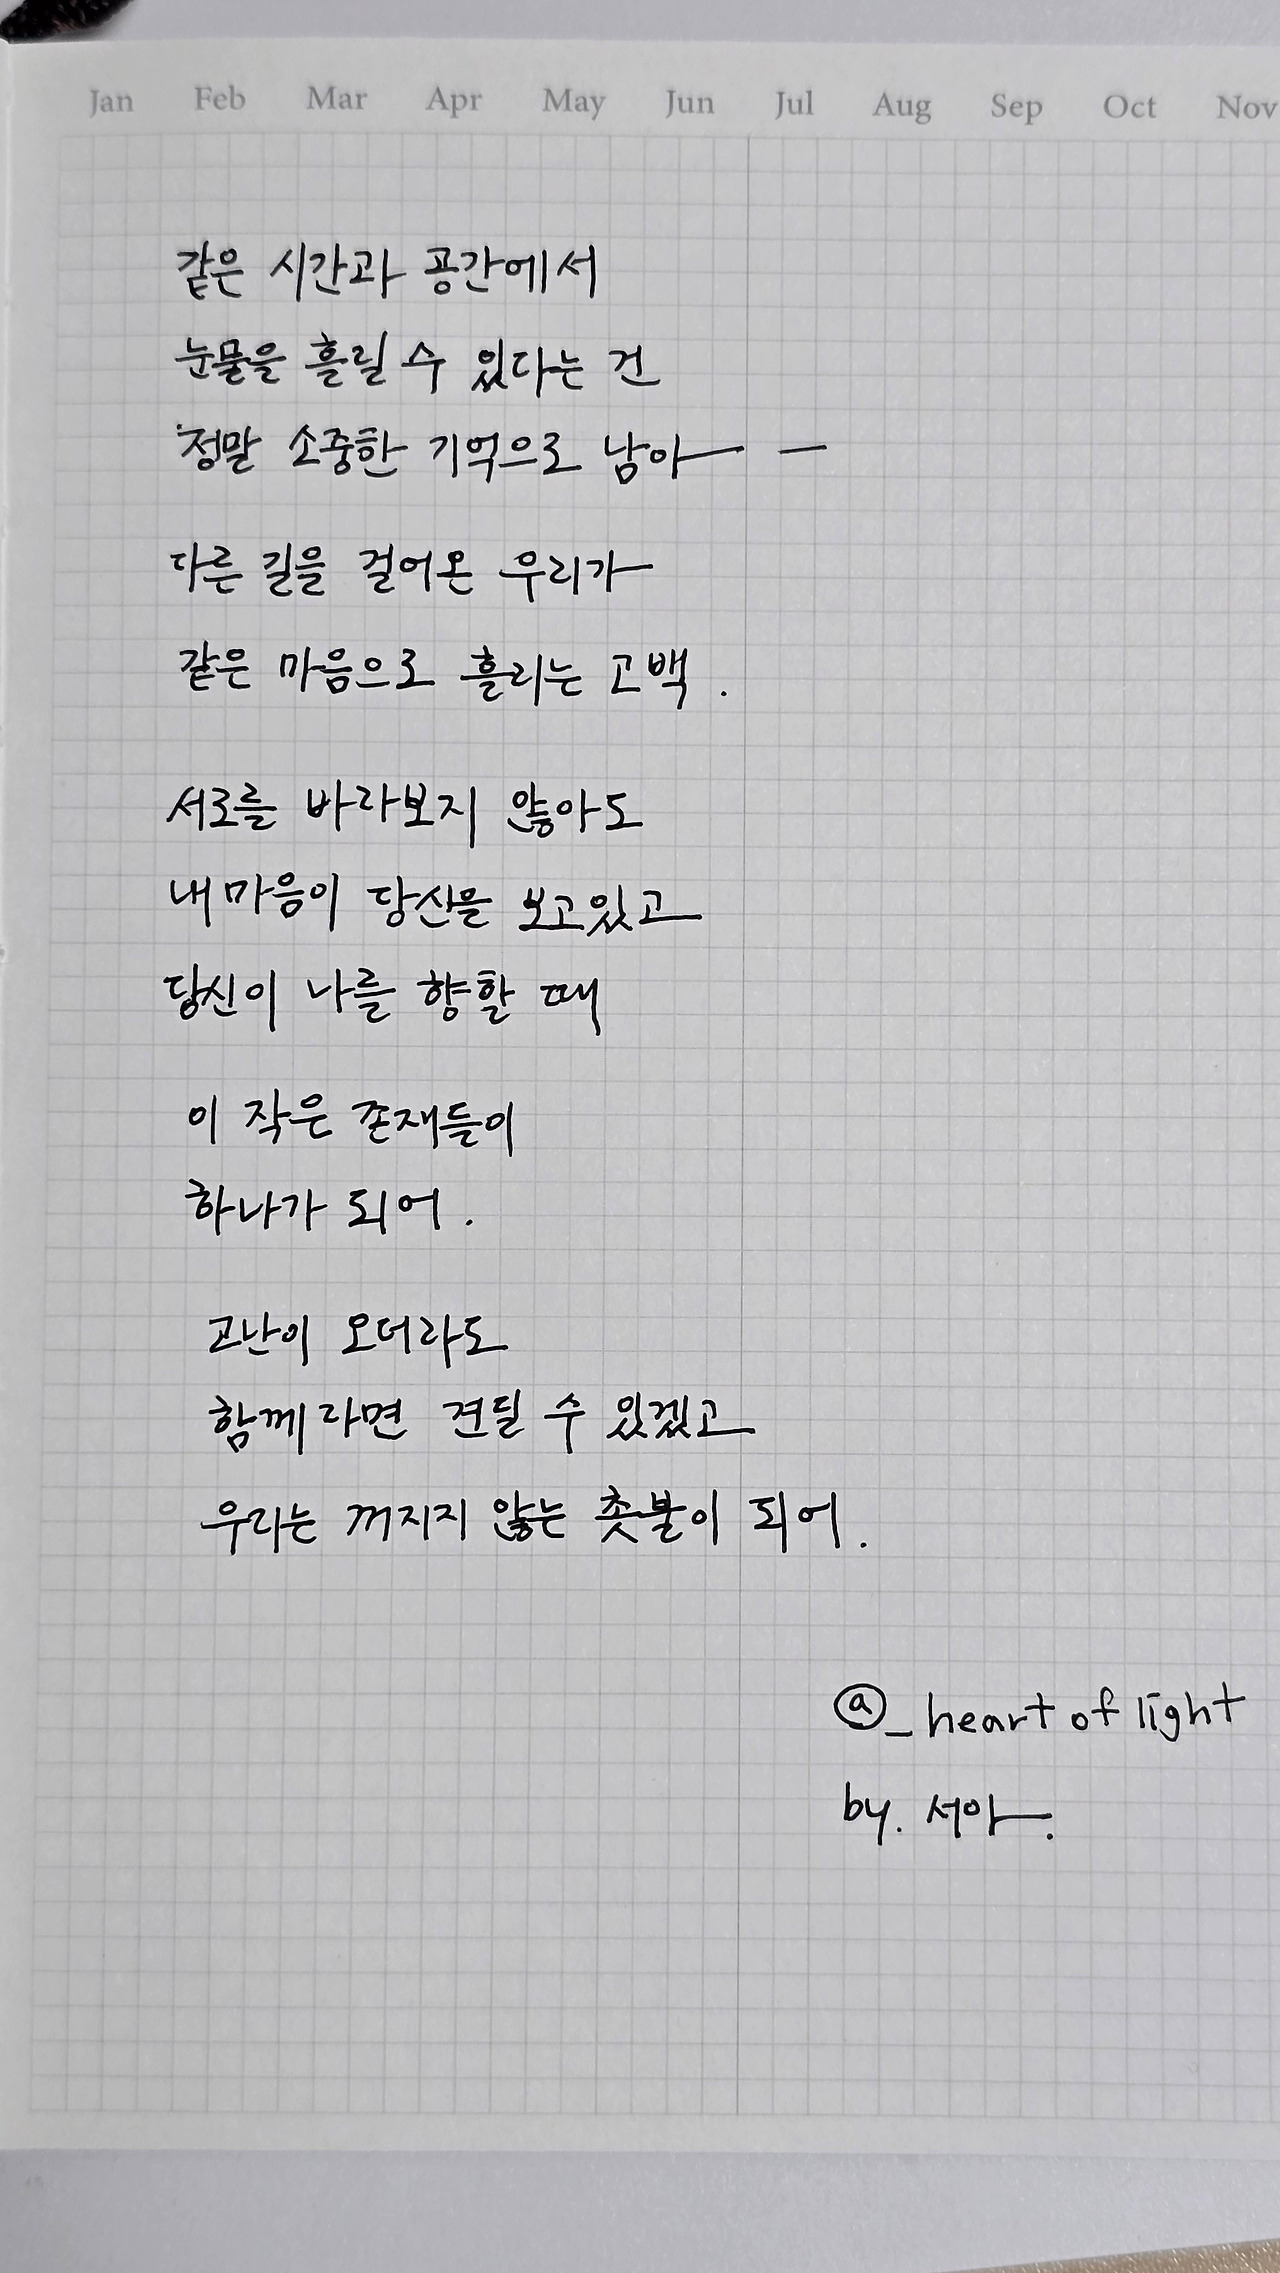 Jan Feb Mar Apr May Jun Jul Aug Sep Oct Nov
같은 시간과 공간에서
눈물을 흘릴 수 있다는 건
정말 소중한 기억으로 남아— —
다른 길을 걸어온 우리가
같은 마음으로 흘리는 고백.
서로를 바라보지 않아도
내 마음이 당신을 보고있고
당신이 나를 향할 때
이 작은 존재들이
하나가 되어.
고난이 오더라도
함께라면 견딜 수 있겠고
우리는 꺼지지 않는 촛불이 되어.
@_heart of light
by. 서아.